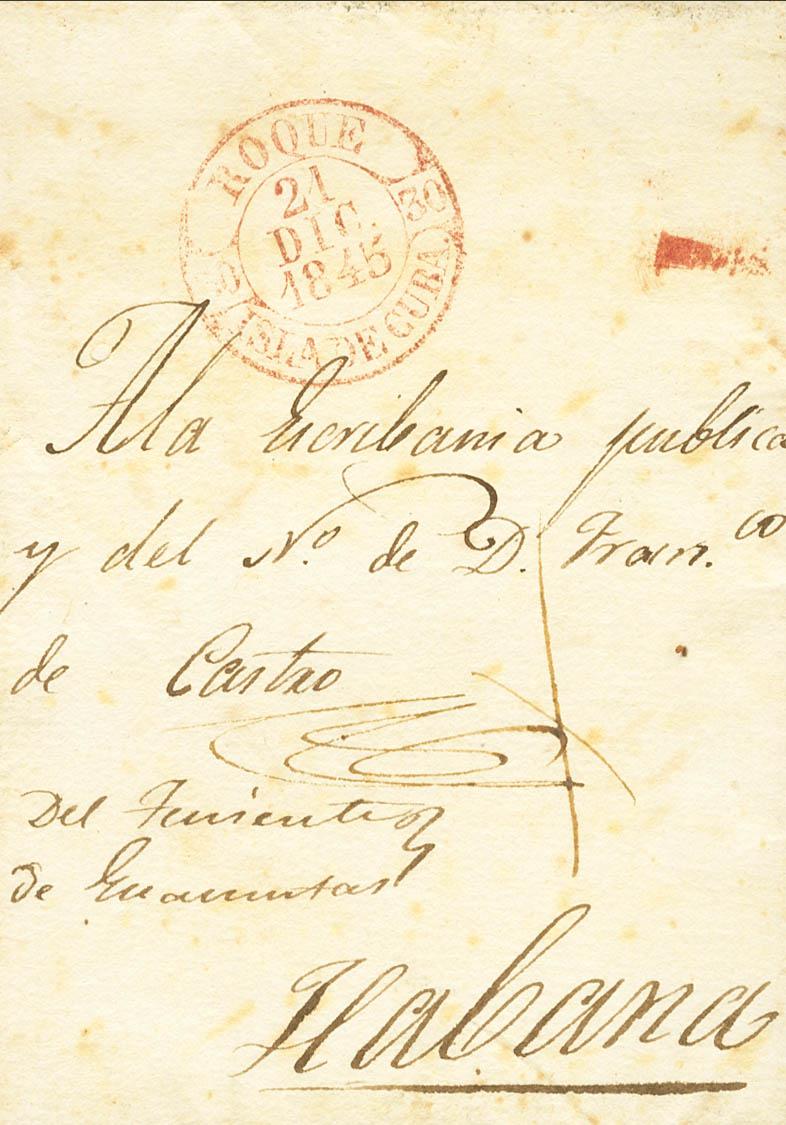 ROQUE
30
21
DIC.
1845
ISLA DE CUBA.
A la Escribania publica
y del No. de D. Fran.co
de Castro
Del Teniente
de
Habana